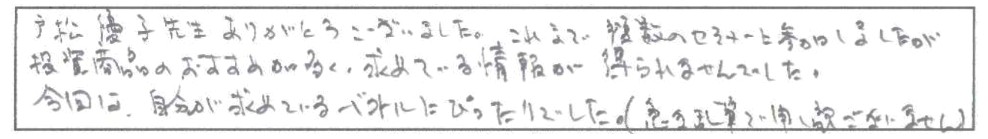 戸松優子先生ありがとうございました。これまで複数のセミナーに参加しましたが
投資商品のおすすめが多く、求めている情報が得られませんでした。
今回は、自分が求めているベクトルにぴったりでした。(急ぎ乱筆で申し訳ございません)